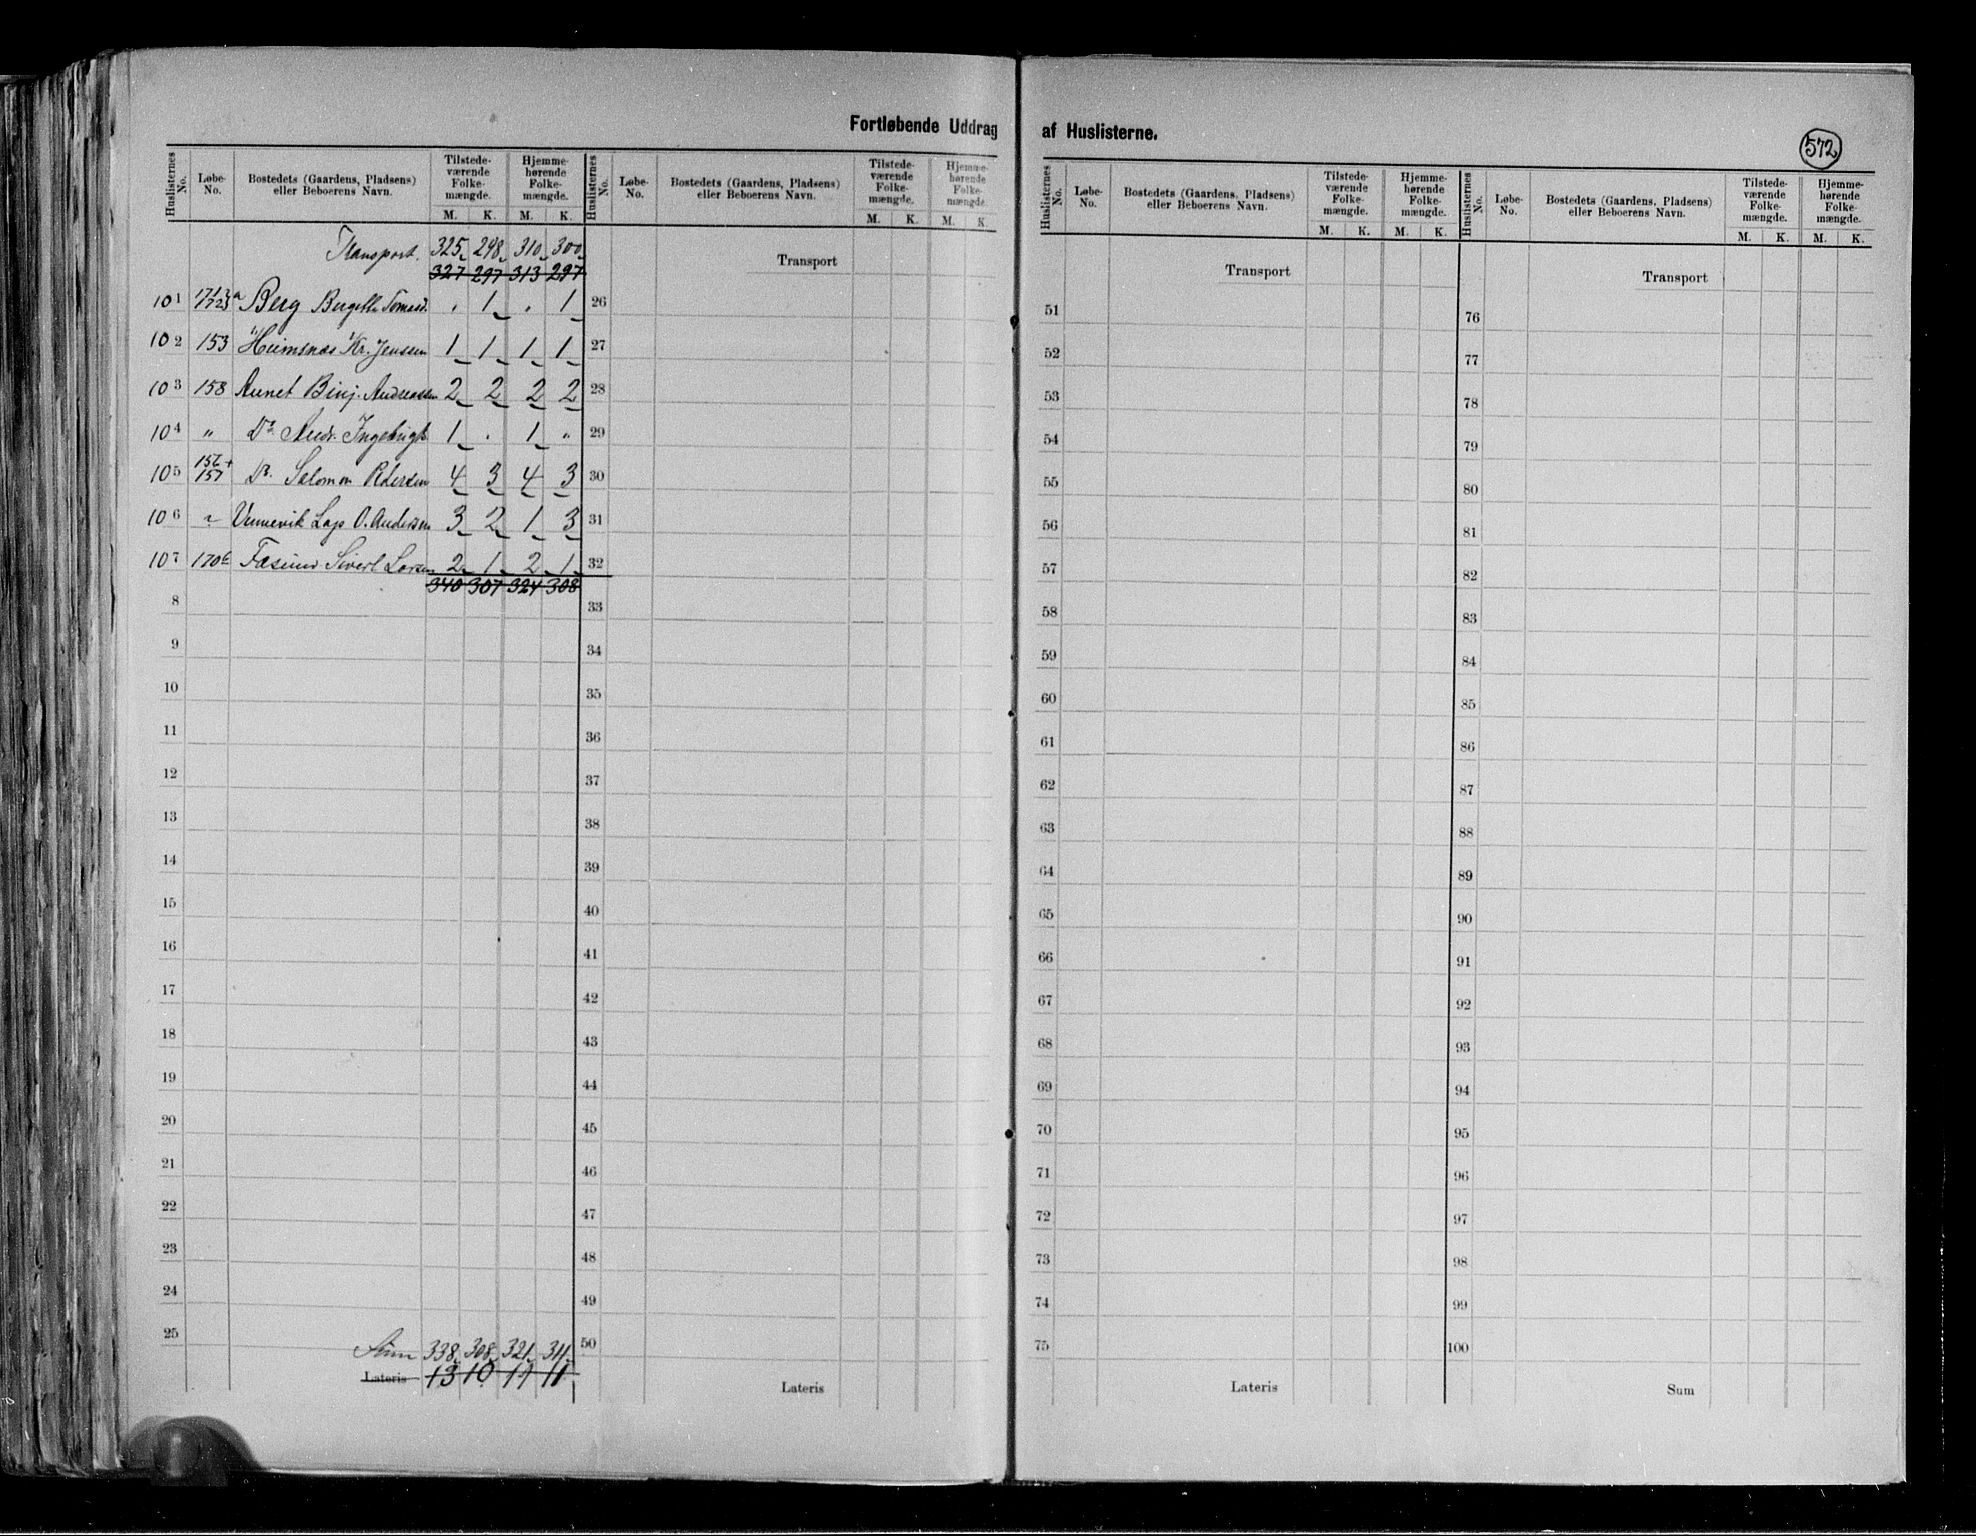 Fortløbende Uddrag af Huslisterne.
572
Huslisternes No. Løbe-No. Bostedets (Gaardens, Pladsens) eller Beboerens Navn. Tilstede-værende Folke-mængde. M. K. Hjemme-hørende Folke-mængde. M. K.
Transport. 325 298 310 300
327 297 313 297
101 Berg Bergitte Tomasd. . 1 . 1
102 153 Heimsnæs Kr. Jenssen 1 1 1 1
103 158 Aunet Binj. Andreassen 2 2 2 2
104 " Do Andr. Ingebrigts 1 . 1 "
105 156+157 Do. Salomon Pedersen 4 3 4 3
106 Lap O. Andersen 3 2 1 3
107 170 Sivert Larsen 2 1 2 1
340 307 324 308
8
9
10
11
12
13
14
15
16
17
18
19
20
21
22
23
24
25
Sum 338 308 321 311
Lateris 13 10 11 11
Huslisternes No. Løbe-No. Bostedets (Gaardens, Pladsens) eller Beboerens Navn. Tilstede-værende Folke-mængde. M. K. Hjemme-hørende Folke-mængde. M. K.
Transport
26
27
28
29
30
31
32
33
34
35
36
37
38
39
40
41
42
43
44
45
46
47
48
49
50
Lateris
Huslisternes No. Løbe-No. Bostedets (Gaardens, Pladsens) eller Beboerens Navn. Tilstede-værende Folke-mængde. M. K. Hjemme-hørende Folke-mængde. M. K.
Transport
51
52
53
54
55
56
57
58
59
60
61
62
63
64
65
66
67
68
69
70
71
72
73
74
75
Lateris
Huslisternes No. Løbe-No. Bostedets (Gaardens, Pladsens) eller Beboerens Navn. Tilstede-værende Folke-mængde. M. K. Hjemme-hørende Folke-mængde. M. K.
Transport
76
77
78
79
80
81
82
83
84
85
86
87
88
89
90
91
92
93
94
95
96
97
98
99
100
Sum